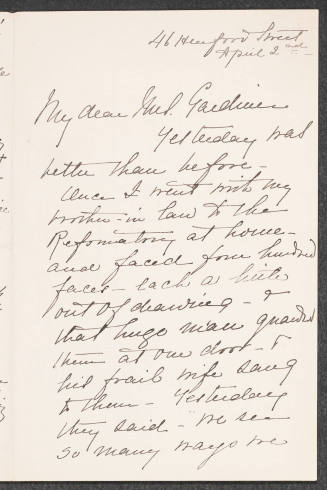 46 Hereford Street
April 2nd
My dear Mrs. Gardiner
Yesterday was
better than before -
Once I went with my
brother-in law to the
Reformatory at home -
and faced four hundred
faces - each a little
out of drawing - &
that huge man guarded
them at one door - &
his frail wife sang
to them - Yesterday
they said - we see
so many ways we